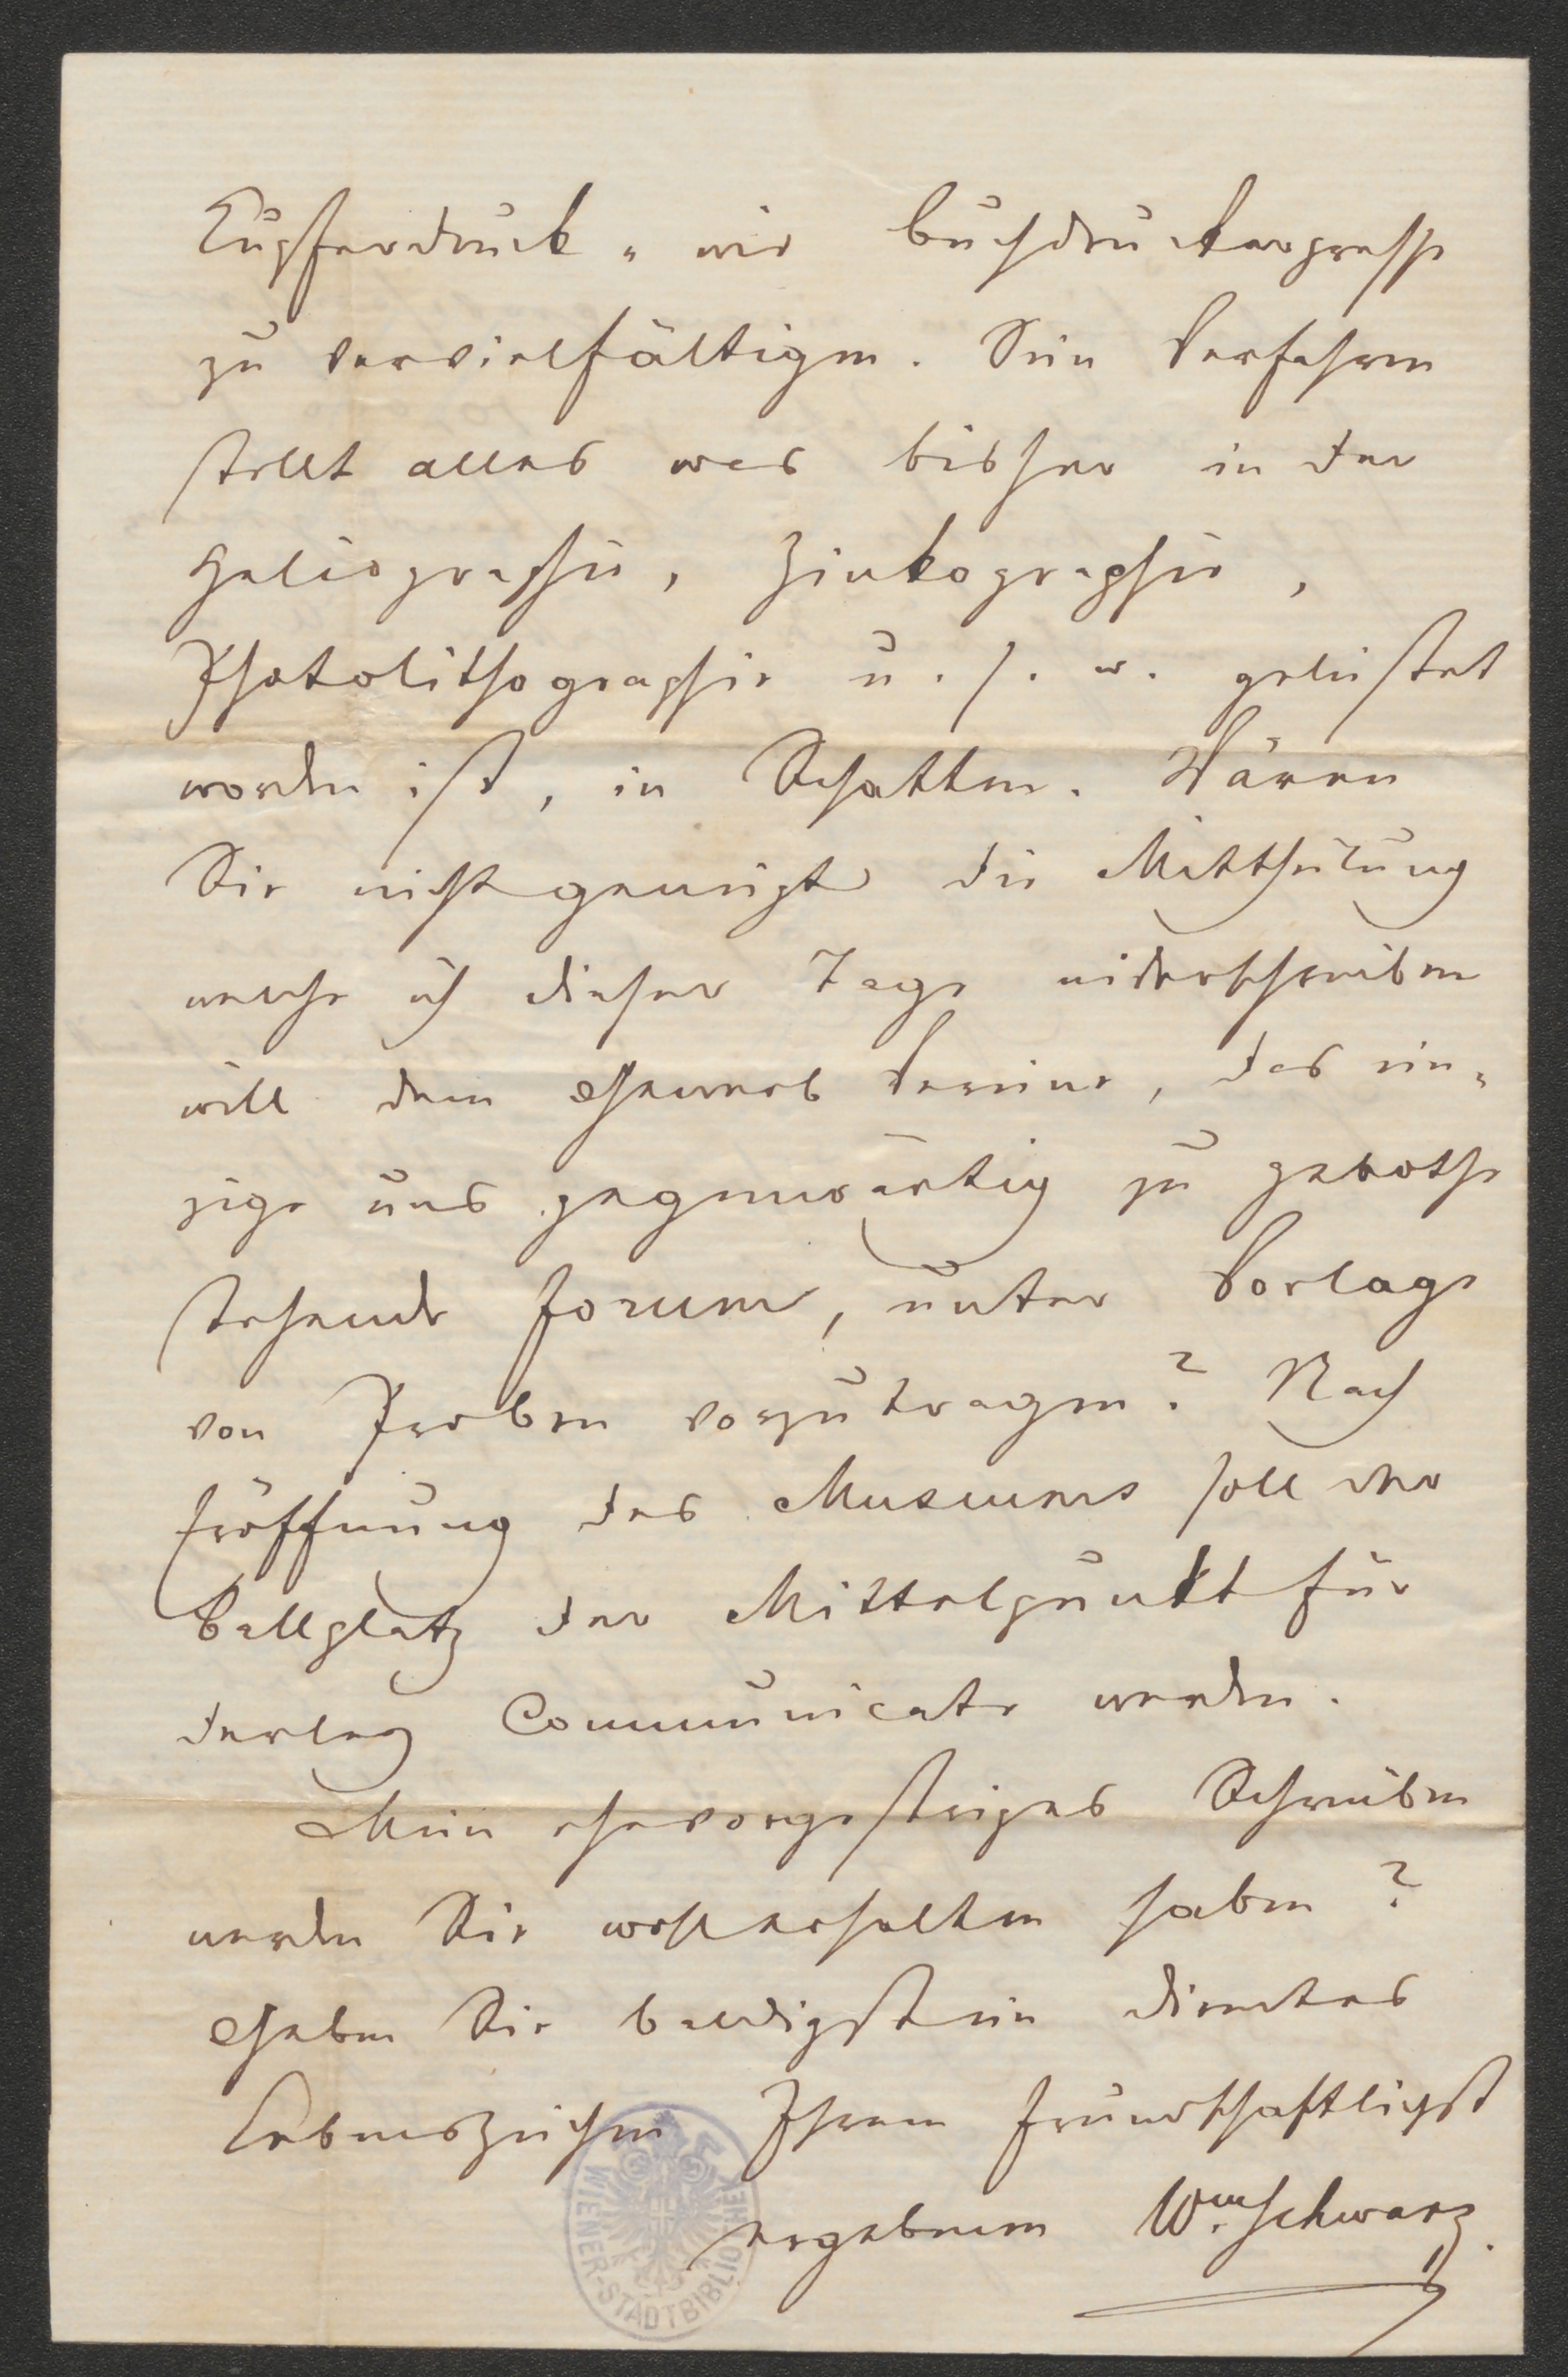 Kupferdruck- wie Buchdruckerpresse
zu vervielfältigen. Sein Verfahren
stellt alles was bisher in der
Heliographie, Zinkographie,
Photolithographie u. s. w. geleistet
worden ist, in Schatten. Wären
Sie nicht geneigt die Mittheilung
welche ich dieser Tage niderschreiben
will dem Gewerb Vereine, das ein-
zige uns gegenwärtig zu gebothe
stehende Forum, unter Vorlage
von Proben vorzutragen? Nach
Eröffnung des Museums soll der
Ballplatz der Mittelpunkt für
derley Communicate werden.
Mein ehevorgestriges Schreiben
werden Sie wohl erhalten haben?
Geben Sie baldigst ein directes
Lebenszeichen Ihrem freundschaftlichst
ergebenen Wm Schwarz.
WIENER-STADTBIBLIOTHEK